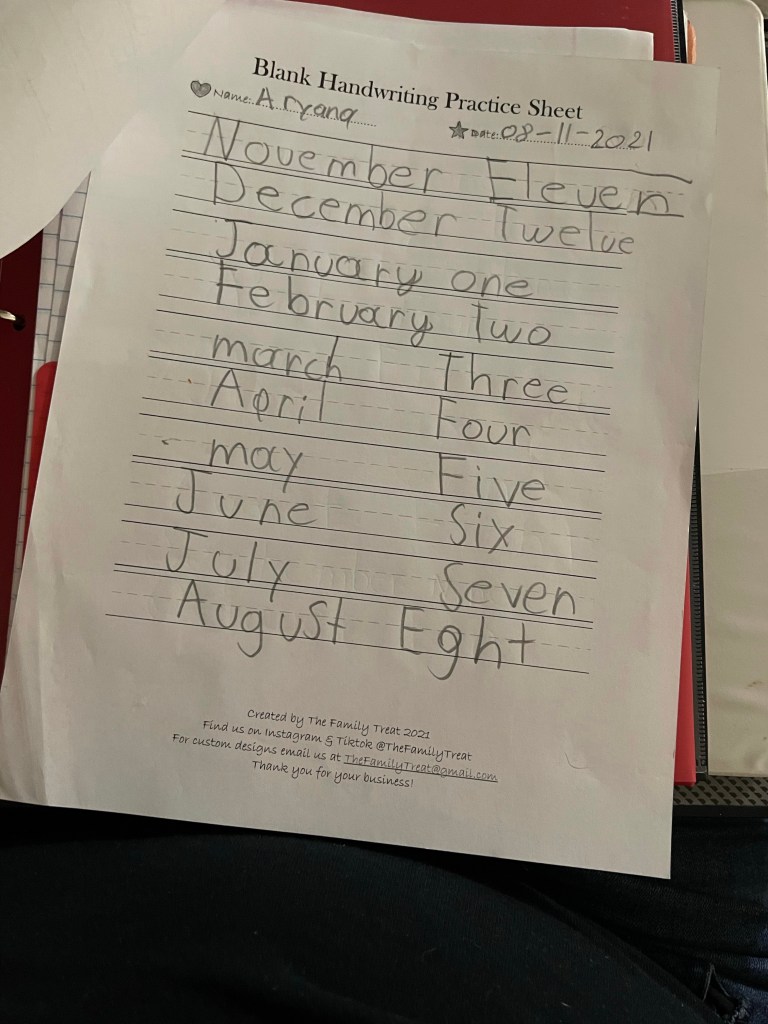 Blank Handwriting Practice Sheet
Name: Aryana
Date: 08-11-2021
November Eleven
December Twelve
January one
February Two
march Three
April Four
may Five
June Six
July Seven
August Eght
Created by The Family Treat 2021
Find us on Instagram & Tiktok @TheFamilyTreat
For custom designs email us at TheFamilyTreat@gmail.com
Thank you for your business!